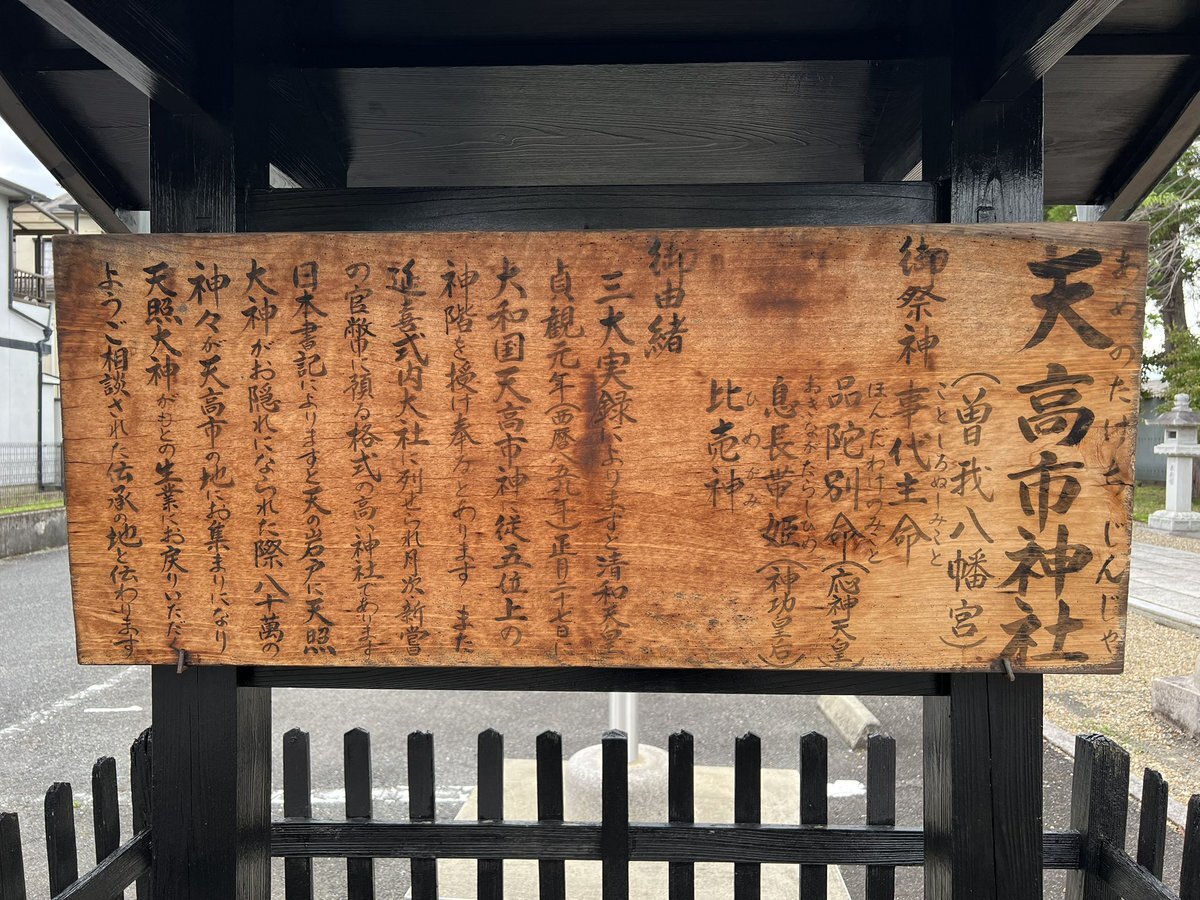 あめのたけちじんじゃ
天高市神社
(曽我八幡宮)
ことしろぬしみこと
御祭神 事代主命
ほんだわけのみこと
品陀別命(応神天皇)
おきながたらしひめ
息長帯姫(神功皇后)
ひめがみ
比売神
御由緒
三大実録によりますと清和天皇
貞観元年(西暦八五九年)正月二十七日に
大和国天高市神従五位上の
神階を授け奉るとあります また
延喜式内大社に列せられ月次新嘗
の官幣に預る格式の高い神社であります
日本書記によりますと天の岩戸に天照
大神がお隠れになられた際 八十萬の
神々が天高市の地にお集まりになり
天照大神がもとの生業にお戻りいただ
ようご相談された伝承の地と伝わります